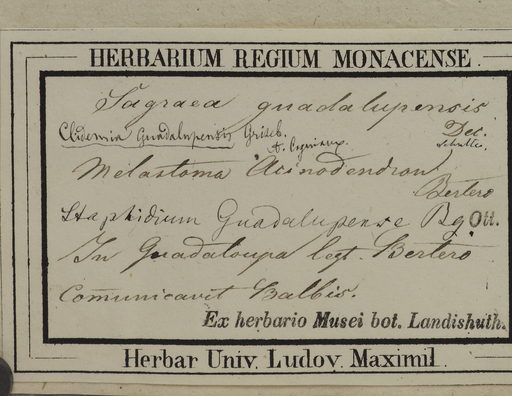 HERBARIUM REGIUM MONACENSE.
Sagraea guadalupensis
Clidemia Guadalupensis Griseb. Dec.
t. Cogniaux.
Melastoma Acinodendron
Bertero
Staphidium Guadalupense Ott.
In Guadaloupa legt. Bertero
Comunicavit Balbis.
Ex herbario Musei bot. Landishuth.
Herbar Univ. Ludov. Maximil.